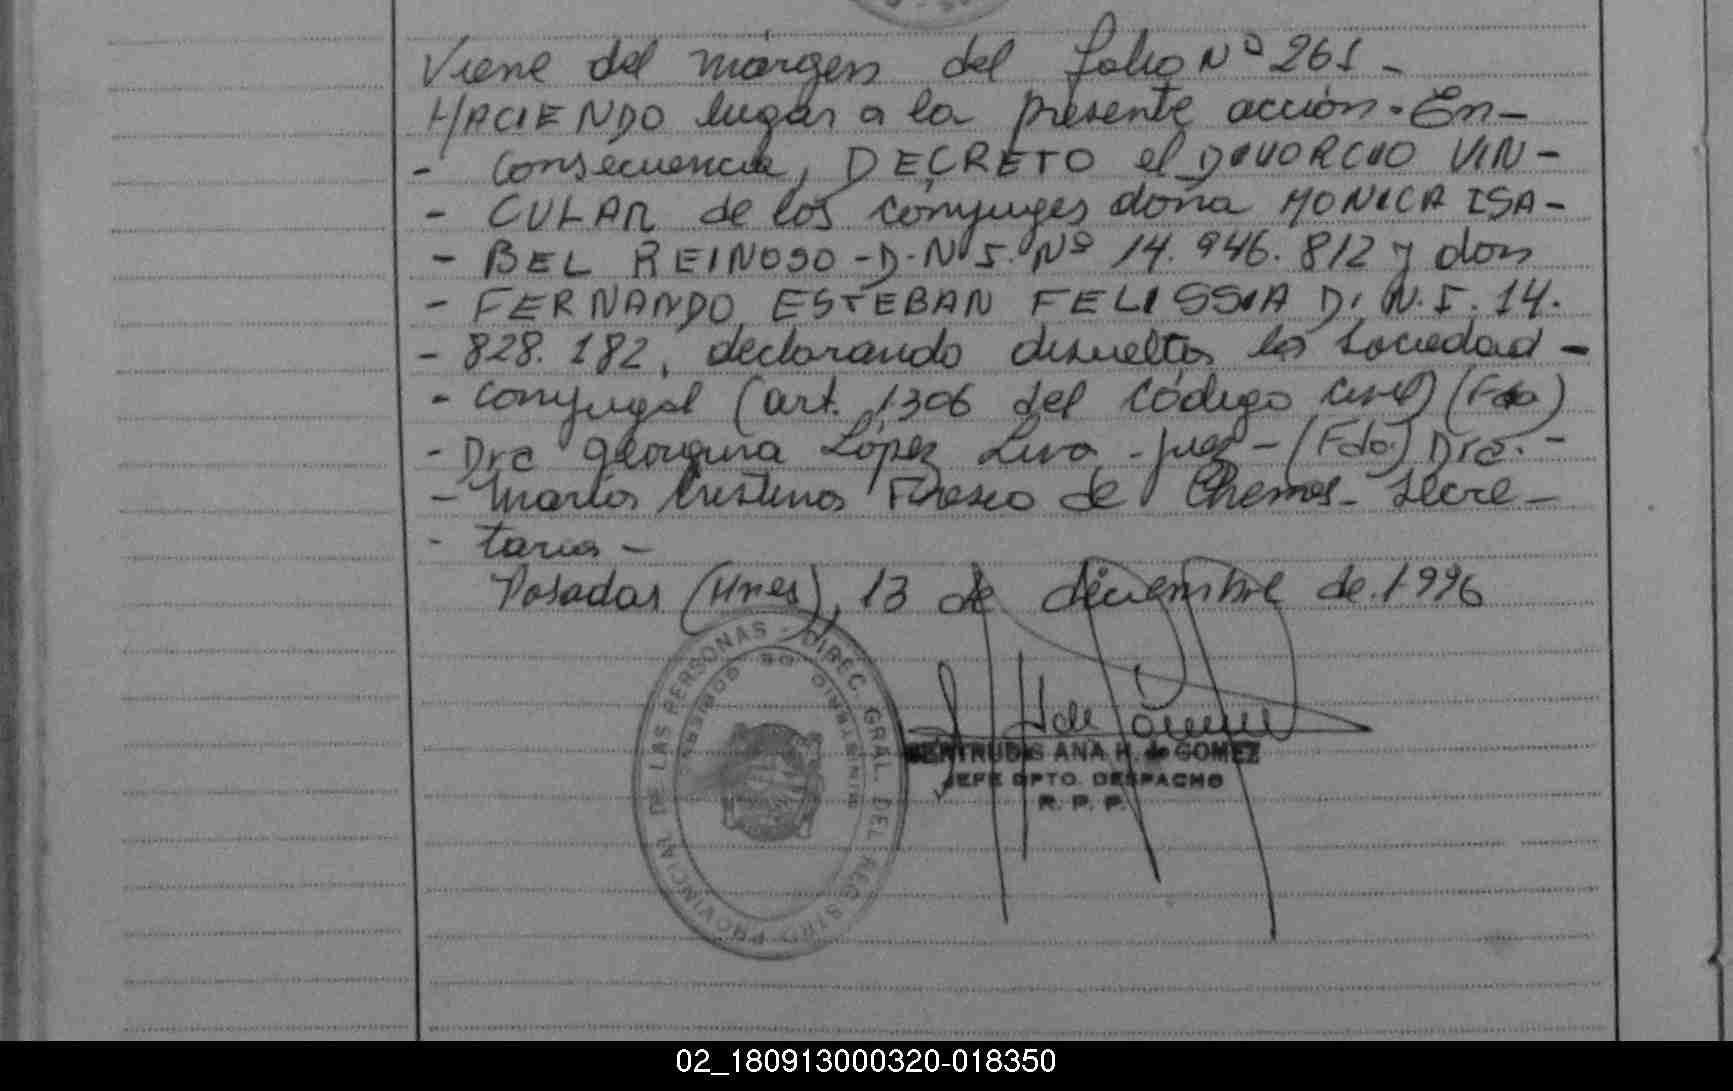 Viene del márgen del folio Nº 261 -
HACIENDO lugar a la presente acción - En -
- consecuencia, DECRETO el DIVORCIO VIN -
- CULAR de los cónyuges doña MONICA ISA -
- BEL REINOSO - D.N.I. Nº 14.946.812 y don
- FERNANDO ESTEBAN FELISSIA D.N.I. 14.
- 828.182, declarando disuelta la Sociedad -
- conyugal (art. 1306 del Código Civil) (Fdo)
- Dra Georgina López Liva - juez - (Fdo.) Dra. -
- María Cristina de Secre -
- taria -
Posadas (Mnes), 13 de diciembre de 1996
DIREC. GRAL. DEL REGISTRO PROVINCIAL DE LAS PERSONAS -
MINISTERIO DE GOBIERNO
GERTRUDIS ANA H. de GOMEZ
JEFE DPTO. DESPACHO
R. P. P.
02_180913000320-018350